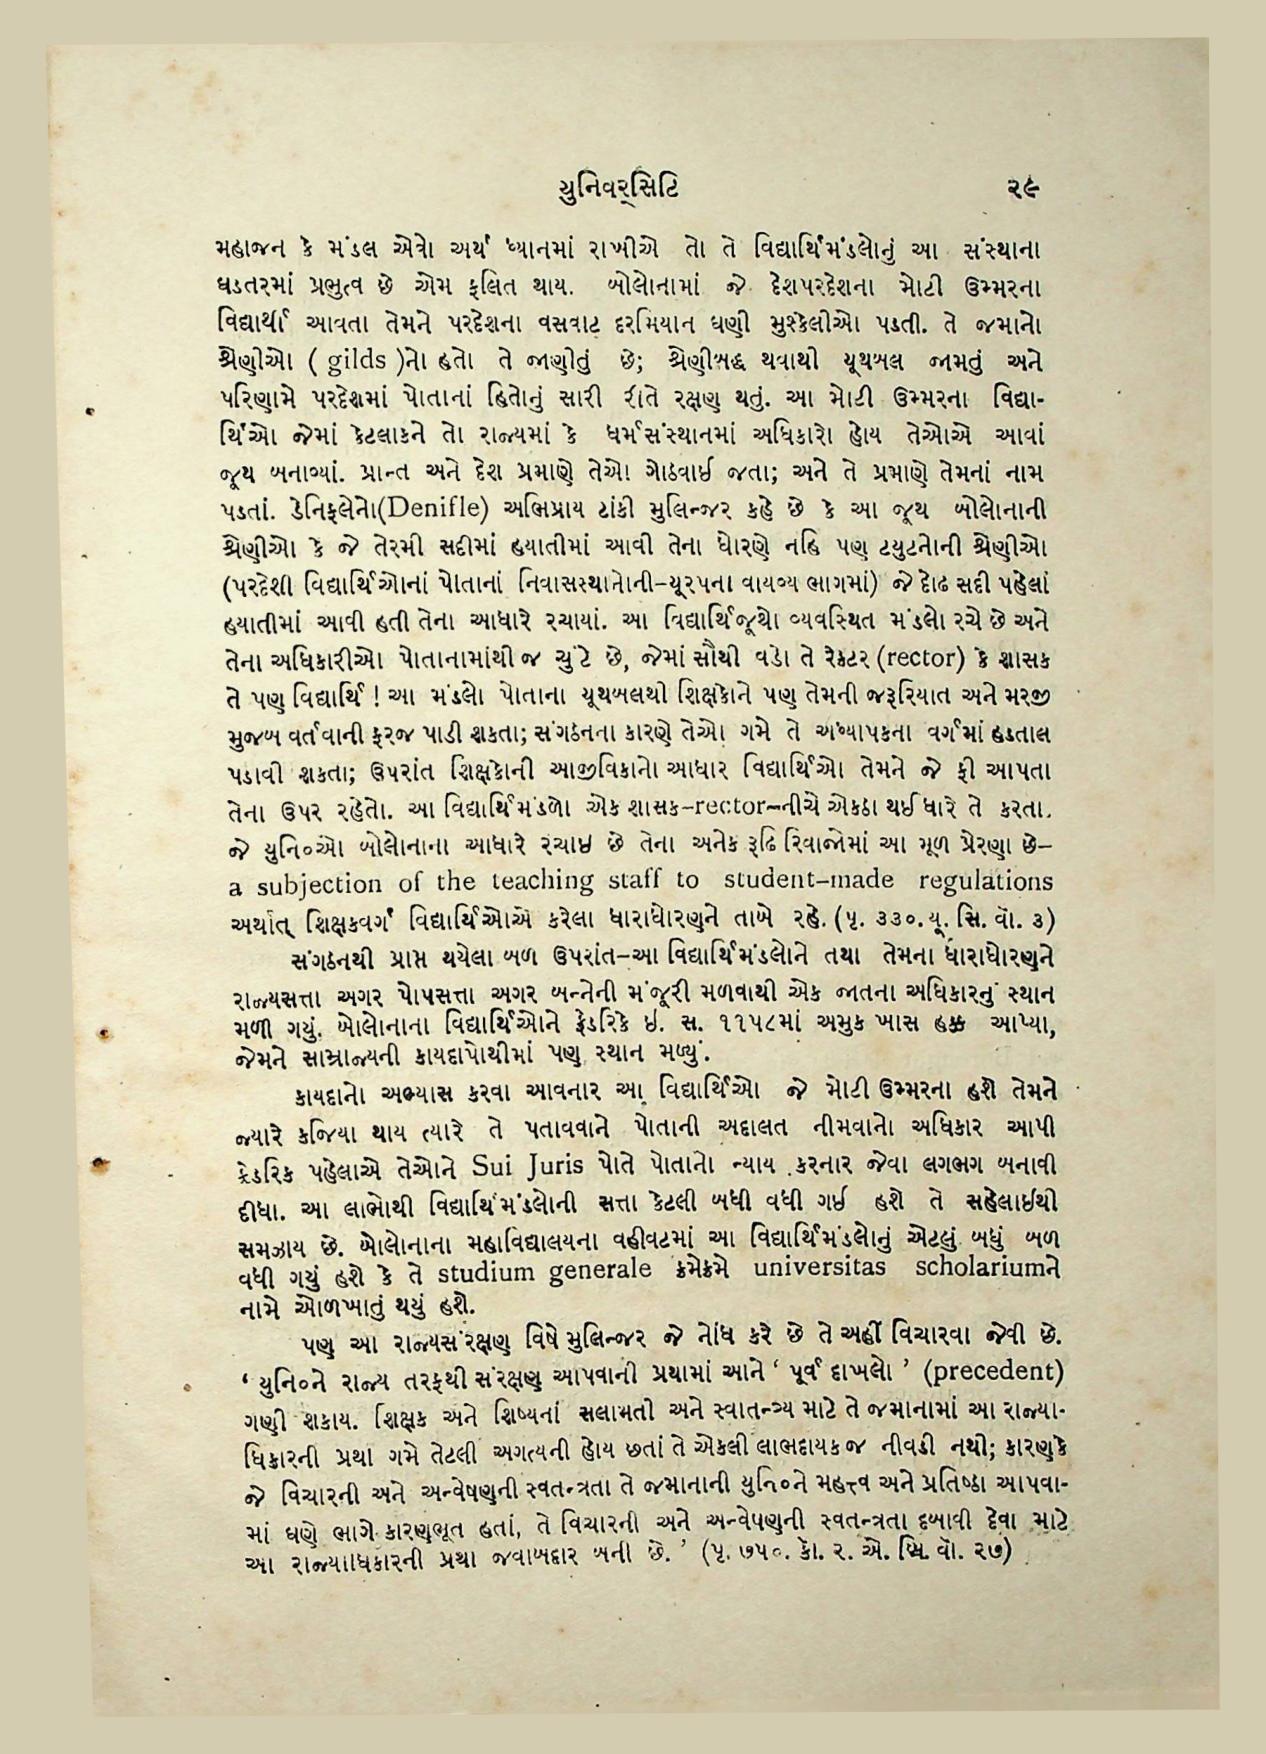 યુનિવર્સિટિ ૨૯
મહાજન કે મંડલ એવો અર્થ ધ્યાનમાં રાખીએ તો તે વિદ્યાર્થિમંડલોનું આ સંસ્થાના
ઘડતરમાં પ્રભુત્વ છે એમ ફલિત થાય. બોલોનામાં જે દેશપરદેશના મોટી ઉમ્મરના
વિદ્યાર્થી આવતા તેમને પરદેશના વસવાટ દરમિયાન ઘણી મુશ્કેલીઓ પડતી. તે જમાનો
શ્રેણીઓ ( gilds )નો હતો તે જાણીતું છે; શ્રેણીબદ્ધ થવાથી યૂથબલ જામતું અને
પરિણામે પરદેશમાં પોતાનાં હિતોનું સારી રીતે રક્ષણ થતું. આ મોટી ઉમ્મરના વિદ્યા-
ર્થિઓ જેમાં કેટલાકને તો રાજ્યમાં કે ધર્મસંસ્થાનમાં અધિકારો હોય તેઓએ આવાં
જૂથ બનાવ્યાં. પ્રાન્ત અને દેશ પ્રમાણે તેઓ ગોઠવાઈ જતા; અને તે પ્રમાણે તેમનાં નામ
પડતાં. ડેનિફલેનો(Denifle) અભિપ્રાય ટાંકી મુલિન્જર કહે છે કે આ જૂથ બોલોનાની
શ્રેણીઓ કે જે તેરમી સદીમાં હયાતીમાં આવી તેના ધોરણે નહિ પણ ટયુટનોની શ્રેણીઓ
(પરદેશી વિદ્યાર્થિઓનાં પોતાનાં નિવાસસ્થાનોની–યૂરપના વાયવ્ય ભાગમાં) જે દોઢ સદી પહેલાં
હયાતીમાં આવી હતી તેના આધારે રચાયાં. આ વિદ્યાર્થિજૂથો વ્યવસ્થિત મંડલો રચે છે અને
તેના અધિકારીઓ પોતાનામાંથી જ ચુંટે છે, જેમાં સૌથી વડો તે રેક્ટર (rector) કે શાસક
તે પણ વિદ્યાર્થિ ! આ મંડલો પોતાના યૂથબલથી શિક્ષકોને પણ તેમની જરૂરિયાત અને મરજી
મુજબ વર્તવાની ફરજ પાડી શકતા; સંગઠનના કારણે તેઓ ગમે તે અધ્યાપકના વર્ગમાં હડતાલ
પડાવી શકતા; ઉપરાંત શિક્ષકોની આજીવિકાનો આધાર વિદ્યાર્થિઓ તેમને જે ફી આપતા
તેના ઉપર રહેતો. આ વિદ્યાર્થિમંડળો એક શાસક–rector–નીચે એકઠા થઈ ધારે તે કરતા.
જે યુનિ૦ઓ બોલોનાના આધારે રચાઇ છે તેના અનેક રૂઢિ રિવાજોમાં આ મૂળ પ્રેરણા છે–
a subjection of the teaching staff to student–made regulations
અર્થાત્ શિક્ષકવર્ગ વિદ્યાર્થિઓએ કરેલા ધારાધોરણને તાબે રહે. (પૃ. ૩૩૦. યૂ. સિ. વૉ. ૩)
સંગઠનથી પ્રાપ્ત થયેલા બળ ઉપરાંત–આ વિદ્યાર્થિમંડલોને તથા તેમના ધારાધોરણને
રાજ્યસત્તા અગર પોપસત્તા અગર બન્નેની મંજૂરી મળવાથી એક જાતના અધિકારનું સ્થાન
મળી ગયું. બોલોનાના વિદ્યાર્થિઓને ફ્રેડરિકે ઇ. સ. ૧૧૫૮માં અમુક ખાસ હક્ક આપ્યા,
જેમને સામ્રાજ્યની કાયદાપોથીમાં પણ સ્થાન મળ્યું.
કાયદાનો અભ્યાસ કરવા આવનાર આ વિદ્યાર્થિઓ જે મોટી ઉમ્મરના હશે તેમને
જ્યારે કજિયા થાય ત્યારે તે પતાવવાને પોતાની અદાલત નીમવાનો અધિકાર આપી
ફ્રેડરિક પહેલાએ તેઓને Sui Juris પોતે પોતાનો ન્યાય કરનાર જેવા લગભગ બનાવી
દીધા. આ લાભોથી વિદ્યાર્થિમંડલોની સત્તા કેટલી બધી વધી ગઈ હશે તે સહેલાઇથી
સમઝાય છે. બોલોનાના મહાવિદ્યાલયના વહીવટમાં આ વિદ્યાર્થિમંડલોનું એટલું બધું બળ
વધી ગયું હશે કે તે studium generale ક્રમેક્રમે universitas scholariumને
નામે ઓળખાતું થયું હશે.
પણ આ રાજ્યસંરક્ષણ વિષે મુલિન્જર જે નોંધ કરે છે તે અહીં વિચારવા જેવી છે.
‘ યુનિ૦ને રાજ્ય તરફથી સંરક્ષણ આપવાની પ્રથામાં આને ‘ પૂર્વ દાખલો ’ (precedent)
ગણી શકાય. શિક્ષક અને શિષ્યનાં સલામતી અને સ્વાતન્ત્ર્ય માટે તે જમાનામાં આ રાજ્યા-
ધિકારની પ્રથા ગમે તેટલી અગત્યની હોય છતાં તે એકલી લાભદાયક જ નીવડી નથી; કારણકે
જે વિચારની અને અન્વેષણની સ્વતન્ત્રતા તે જમાનાની યુનિ૦ને મહત્ત્વ અને પ્રતિષ્ઠા આપવા-
માં ઘણે ભાગે કારણભૂત હતાં, તે વિચારની અને અન્વેષણની સ્વતન્ત્રતા દબાવી દેવા માટે
આ રાજ્યાધિકારની પ્રથા જવાબદાર બની છે. ’ (પૃ. ૭૫૦. કો. ર. એ. બ્રિ. વૉ. ૨૭)